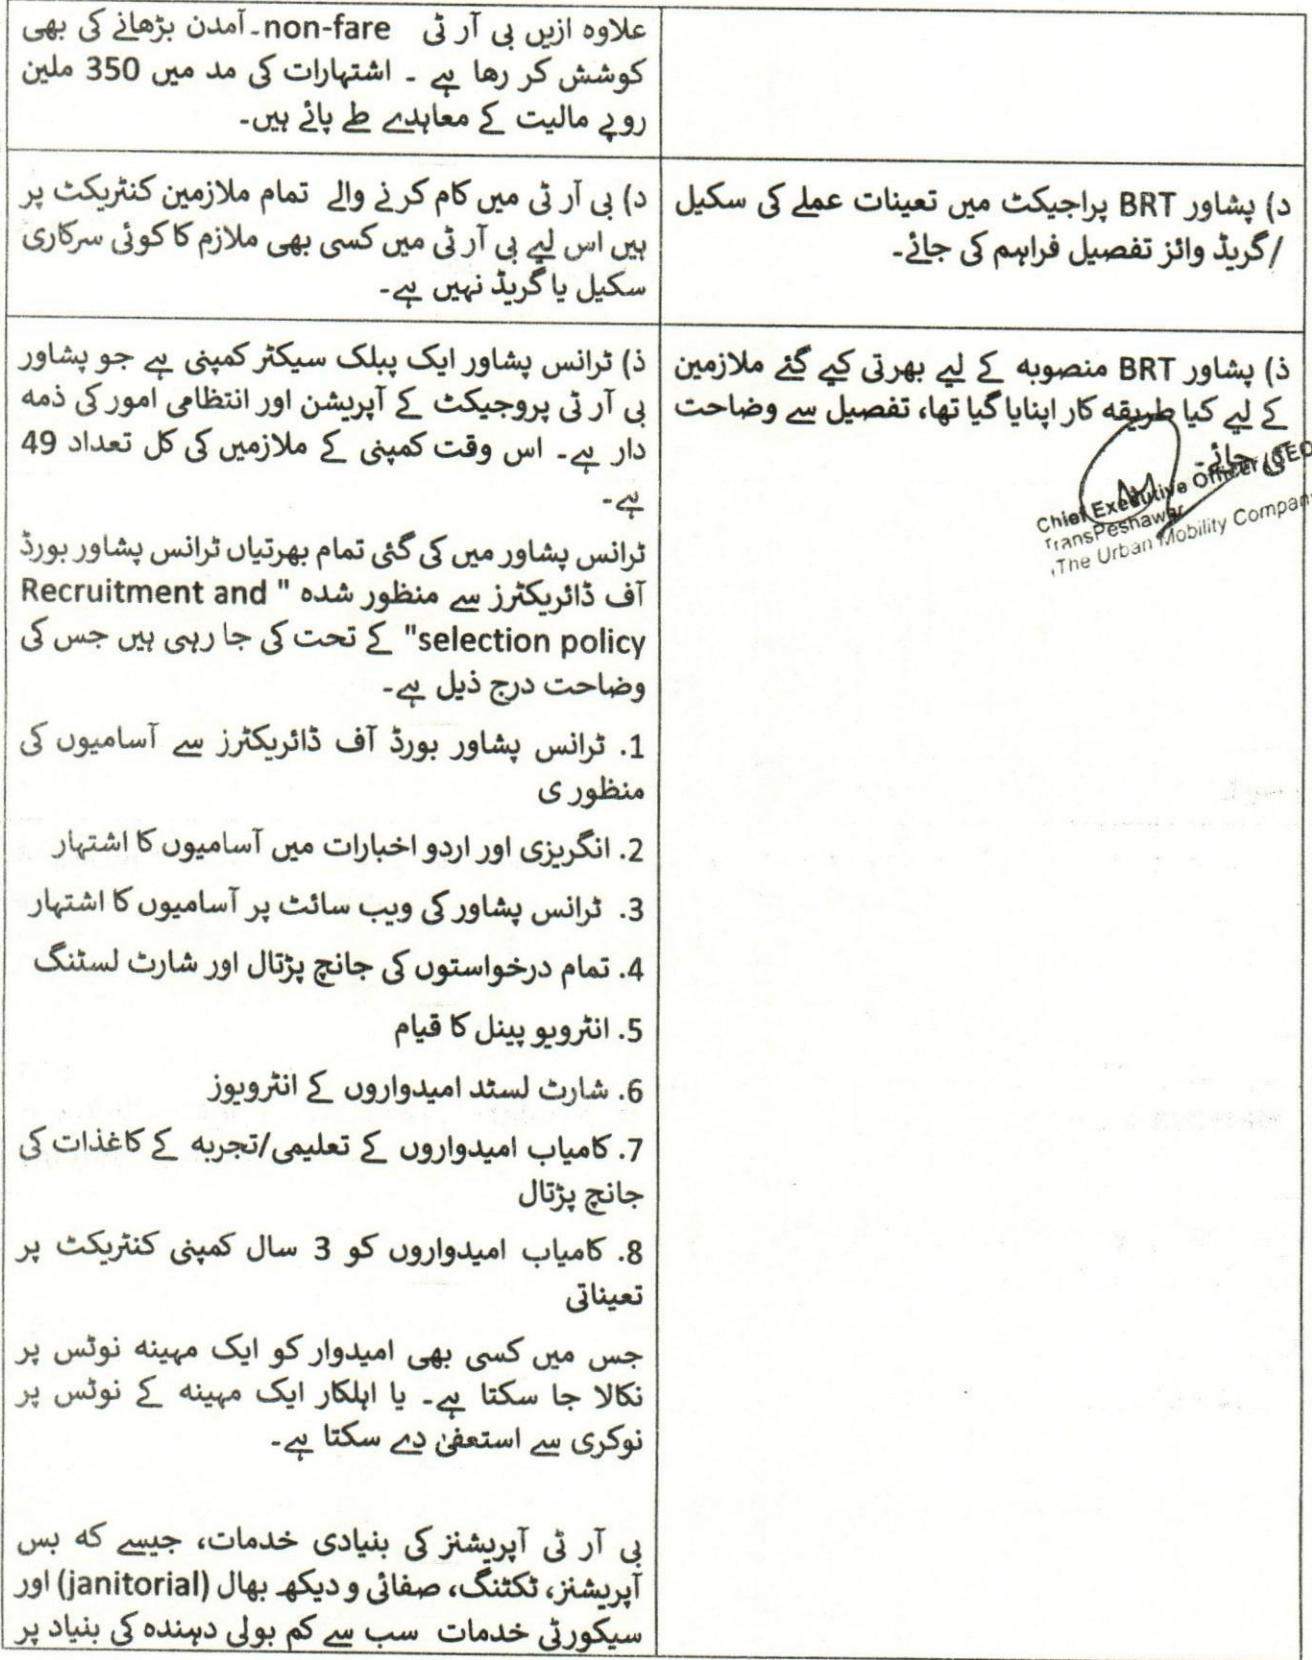 علاوہ ازیں بی آر ٹی non-fare۔آمدن بڑھانے کی بھی
کوشش کر رھا ہے ۔ اشتہارات کی مد میں 350 ملین
روپے مالیت کے معاہدے طے پائے ہیں۔
د) پشاور BRT پراجیکٹ میں تعینات عملے کی سکیل
/گریڈ وائز تفصیل فراہم کی جائے۔
د) بی آر ٹی میں کام کرنے والے تمام ملازمین کنٹریکٹ پر
ہیں اس لیے بی آر ٹی میں کسی بھی ملازم کا کوئی سرکاری
سکیل یا گریڈ نہیں ہے۔
ذ) پشاور BRT منصوبہ کے لیے بھرتی کیے گئے ملازمین
کے لیے کیا طریقہ کار اپنایا گیا تھا، تفصیل سے وضاحت
کی جائے۔
Chief Executive Officer (CEO
TransPeshawar
,The Urban Mobility Company
ذ) ٹرانس پشاور ایک پبلک سیکٹر کمپنی ہے جو پشاور
بی آر ٹی پروجیکٹ کے آپریشن اور انتظامی امور کی ذمہ
دار ہے۔ اس وقت کمپنی کے ملازمیں کی کل تعداد 49
ہے۔
ٹرانس پشاور میں کی گئی تمام بھرتیاں ٹرانس پشاور بورڈ
آف ڈائریکٹرز سے منظور شدہ " Recruitment and
selection policy" کے تحت کی جا رہی ہیں جس کی
وضاحت درج ذیل ہے۔
1. ٹرانس پشاور بورڈ آف ڈائریکٹرز سے آسامیوں کی
منظور ی
2. انگریزی اور اردو اخبارات میں آسامیوں کا اشتہار
3. ٹرانس پشاور کی ویب سائٹ پر آسامیوں کا اشتہار
4. تمام درخواستوں کی جانچ پڑتال اور شارٹ لسٹنگ
5. انٹرویو پینل کا قیام
6. شارٹ لسٹد امیدواروں کے انٹرویوز
7. کامیاب امیدواروں کے تعلیمی/تجربہ کے کاغذات کی
جانچ پڑتال
8. کامیاب امیدواروں کو 3 سال کمپنی کنٹریکٹ پر
تعیناتی
جس میں کسی بھی امیدوار کو ایک مہینہ نوٹس پر
نکالا جا سکتا ہے۔ یا اہلکار ایک مہینہ کے نوٹس پر
نوکری سے استعفیٰ دے سکتا ہے۔
بی آر ٹی آپریشنز کی بنیادی خدمات، جیسے کہ بس
آپریشنز، ٹکٹنگ، صفائی و دیکھ بھال (janitorial) اور
سیکورٹی خدمات سب سے کم بولی دہندہ کی بنیاد پر